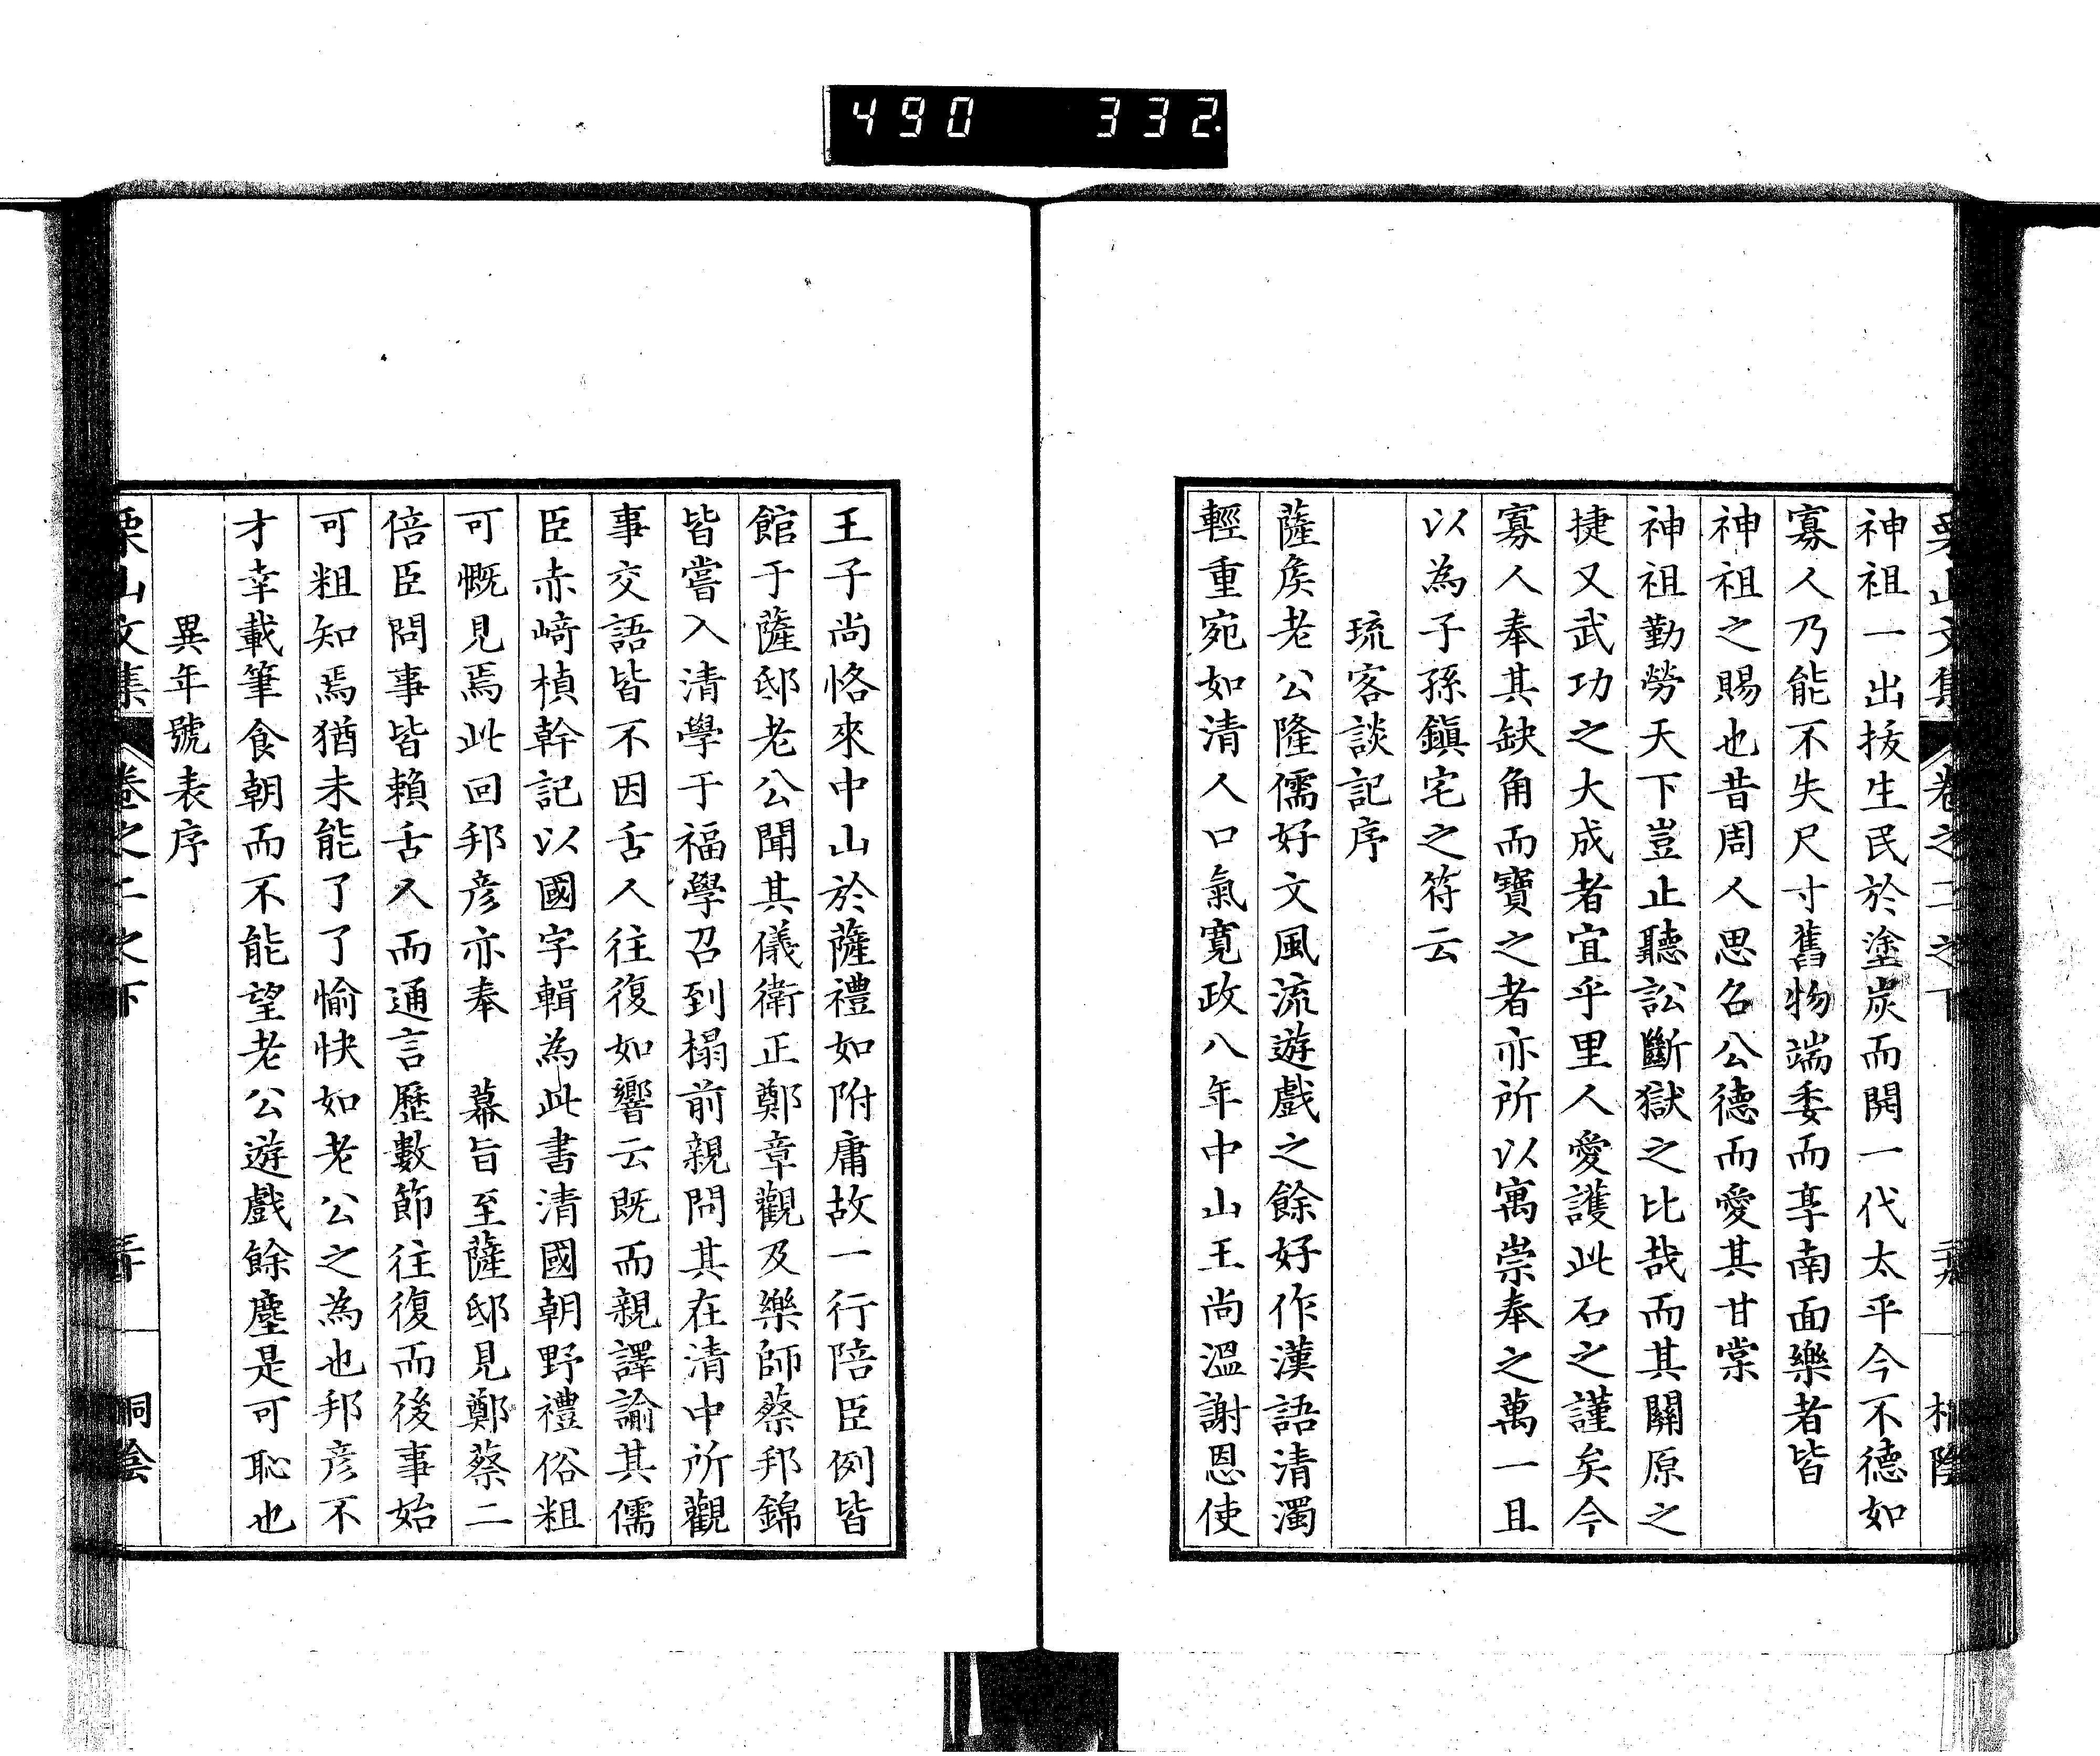 490 332
栗山文集 卷之二之下 桐陰
神祖一出拔生民於塗炭而開一代太平今不德如
寡人乃能不失尺寸舊物端委而享南面樂者皆
神祖之賜也昔周人思召公德而愛其甘棠
神祖勤勞天下豈止聽訟斷獄之比哉而其關原之
捷又武功之大成者宜乎里人愛護此石之謹矣今
寡人奉其缺角而寶之者亦所以寓崇奉之萬一且
以為子孫鎭宅之符云
琉客談記序
薩矦老公隆儒好文風流遊戲之餘好作漢語清濁
輕重宛如清人口氣寬政八年中山王尚溫謝恩使
王子尚恪來中山於薩禮如附庸故一行陪臣例皆
館于薩邸老公聞其儀衛正鄭章觀及樂師蔡邦錦
皆嘗入清學于福學召到榻前親問其在清中所觀
事交語皆不因舌人往復如響云既而親譯諭其儒
臣赤﨑楨幹記以國字輯為此書清國朝野禮俗粗
可慨見焉此回邦彦亦奉 幕旨至薩邸見鄭蔡二
倍臣問事皆賴舌人而通言歷數節往復而後事始
可粗知焉猶未能了了愉快如老公之為也邦彦不
才幸載筆食朝而不能望老公遊戲餘塵是可恥也
異年號表序
栗山文集 卷之二之下 三十 桐陰